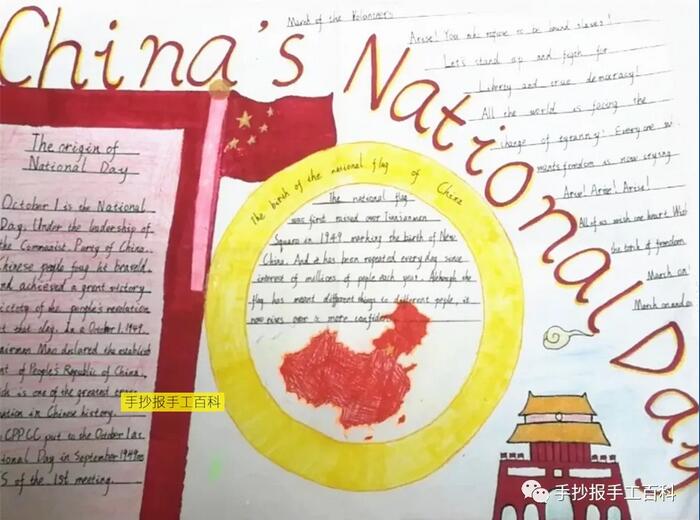 China's National Day
March of the Volunteers
Arise! You who refuse to be bound slaves!
Let's stand up and fight for
Liberty and true democracy!
All the world is facing the
change of tyranny: Everyone w
wants freedom is now crying
Arise! Arise! Arise!
All of us with one heart Wi
the torch of freedom
March on!
March on and o
The origin of
National Day
October 1 is the National
Day. Under the leadership of
the Communist Party of China.
Chinese people
and achieved a great victory
of the people's revolution
that day. In a October 1.1949.
airman Mao declared the establish
nt of People's Republic of China.
ich is one of the greatest
ution in Chinese history.
CPPCC put to the October 1 as
tional Day in September 1949
S of the 1st meeting.
The birth of the national flag of China
The national flag
was first raised over Tiananmen
Square in 1949 marking the birth of New
China. And it has been repeated every day since
interest of millions of pople each year. Although the
flag has meant different things to different people, it
now gives over a more confiden
手抄报手工百科
手抄报手工百科